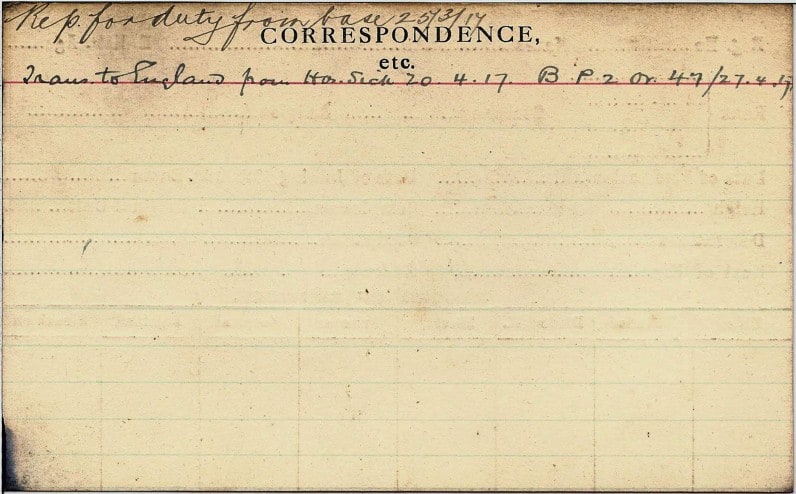 Rep. for duty from base 25/3/17
CORRESPONDENCE,
etc.
Trans. to England from Hos. Sick 20.4.17. B.P.2 Or. 47/27.4.17